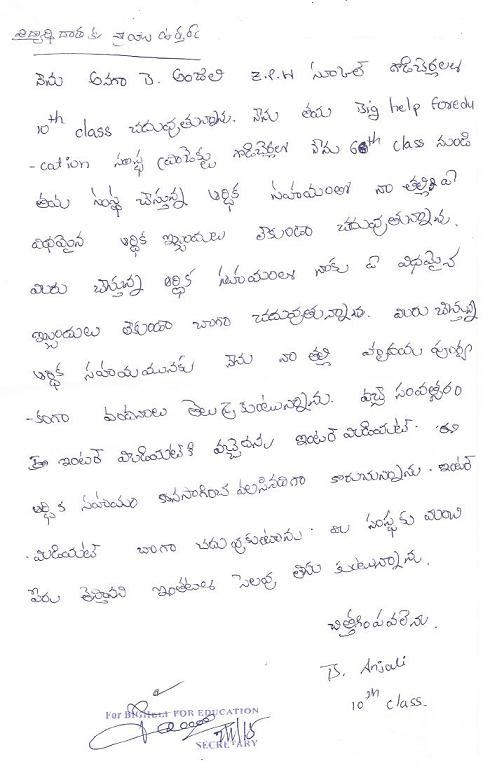 విద్యార్థి దాతకు వ్రాయు ఉత్తరం
నేను అనగా B. అంజలి Z.P.H స్కూల్ గొడిచెర్లలో
10th class చదువుతున్నాను. నేను తమ Big help foredu
-cation సంస్థ ప్రాజెక్టు గొడిచెర్లలో నేను 6th class నుండి
తమ సంస్థ చేస్తున్న ఆర్థిక సహాయంతో నా తల్లికి ఏ
విధమైన ఆర్థిక ఇబ్బందులు లేకుండా చదువుతున్నాను.
మీరు చేస్తున్న ఆర్థిక సహాయంలు నాకు ఏ విధమైన
ఇబ్బందులు లేకుండా బాగా చదువుతున్నాను. మీరు చేస్తున్న
ఆర్థిక సహాయమునకు నేను నా తల్లి హృదయ పూర్వ
-కంగా వందనంలు తెలుపుకుంటున్నాను. వచ్చే సంవత్సరం
ఇంటర్ మీడియట్‌కి వచ్చెదను ఇంటర్ మీడియట్. ఈ
ఆర్థిక సహాయం కొనసాగించ వలసినదిగా కోరుచున్నాను. ఇంటర్
మీడియట్ బాగా చదువుకుంటాను. ఈ సంస్థకు మంచి
పేరు తెస్తానని ఇంతటితో సెలవు తీసు కుంటున్నాను.
చిత్తగింపవలెను.
B. Anjali
10th class.
For BIGHELP FOR EDUCATION
SECRETARY